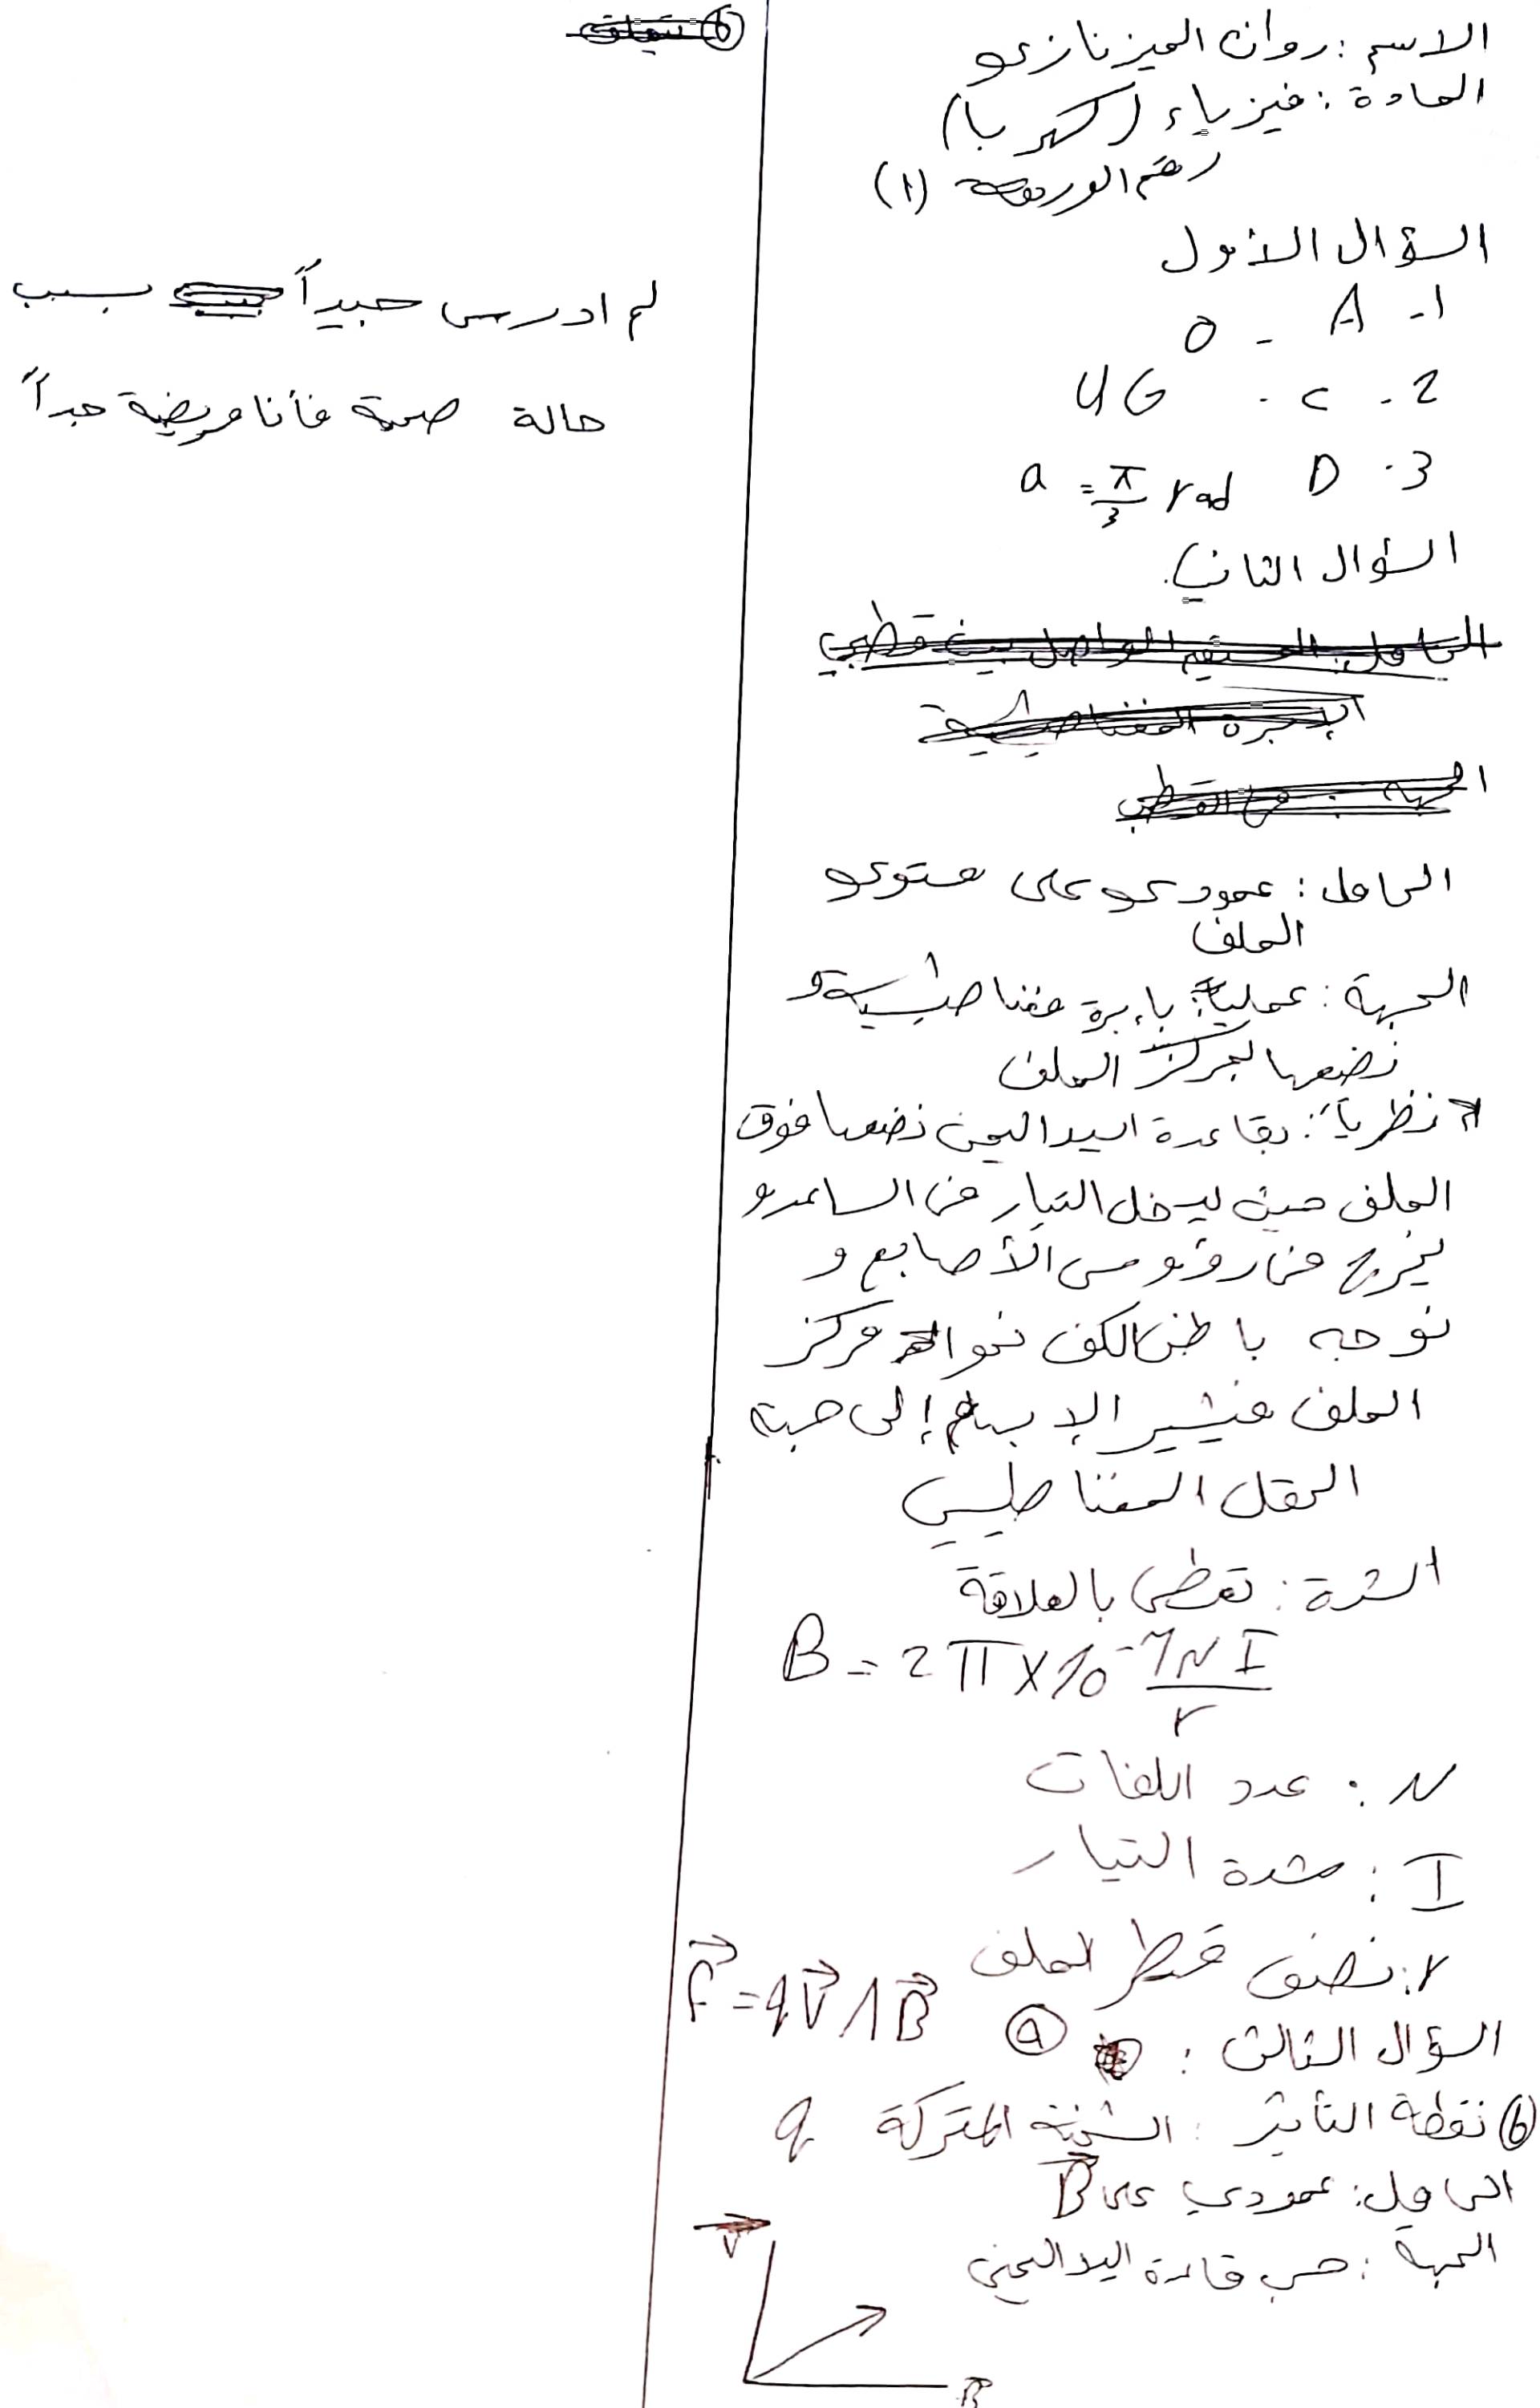 الاسم : روان الميزنازي
المادة : فيزياء (كهربا)
رقم الورقة (1)
السؤال الأول
1- A - 0
2 - c - 4G
3 - D a = π/3 rad
السؤال الثاني
الحامل : عمودي على مستوي
الملف
الجهة : عملياً : بإبرة مغناطيسية و
نضعها لمركز الملف
نظرياً : بقاعدة اليد اليمنى نضعها فوق
الملف حيث يدخل التيار من الساعد و
يخرج من رؤوس الأصابع و
نوجه باطن الكف نحو مركز
الملف فيشير الإبهام إلى جهة
الحقل المغناطيسي
الشدة : تعطى بالعلاقة
B = 2π×10⁻⁷ NI/r
N : عدد اللفات
I : شدة التيار
r : نصف قطر الملف
السؤال الثالث : (a) F⃗ = qV⃗ ∧ B⃗
(b) نقطة التأثير : الشحنة المتحركة q
الحامل : عمودي على B⃗
الجهة : حسب قاعدة اليد اليمنى
V
B⃗
لم ادرس جيداً بسبب
حالة صحية فأنا مريضة جداً